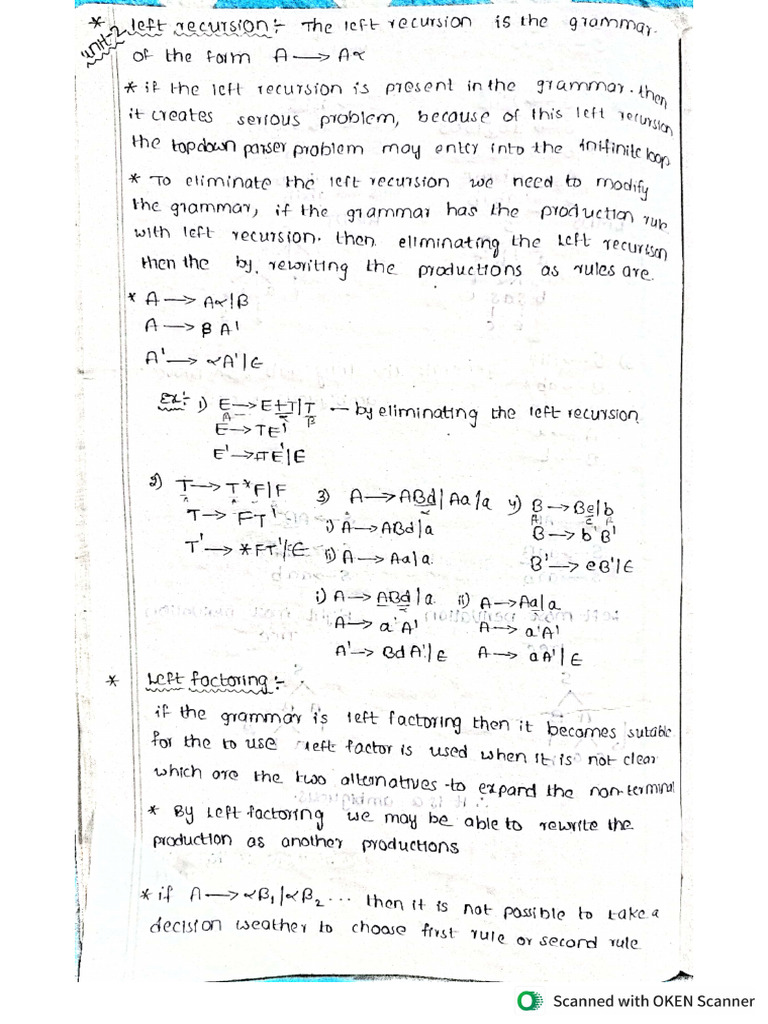 * left recursion:- The left recursion is the grammar.
unit-2
of the form A → Aα
* if the left recursion is present in the grammar. then
it creates serious problem, because of this left recursion
the topdown parser problem may enter into the inifinite loop
* To eliminate the left recursion we need to modify
the grammar, if the grammar has the production rule
with left recursion. then eliminating the left recursion
then the by. rewriting the productions as rules are.
* A → Aα|B
A → βA'
A' → αA'|ε
Ex:- 1) E → E+T|T — by eliminating the left recursion
A α β
E → TE'
E' → +TE'|ε
2) T → T*F|F
T → FT'
T' → *FT'|ε
3) A → ABd|Aa|a
i) A → ABd|a
ii) A → Aa|a
4) B → Be|b
B → b'B'
B' → eB'|ε
i) A → ABd|a ii) A → Aa|a
A → a'A' A → a'A'
A' → BdA'|ε A → aA'|ε
* Left factoring:-
if the grammar is left factoring then it becomes sutable
for the to use left factor is used when it is not clear
which are the two alternatives to expand the non-terminal
* By left factoring we may be able to rewrite the
production as another productions
* if A → αB1|αB2 ... then it is not possible to take a
decision weather to choose first rule or second rule
Scanned with OKEN Scanner